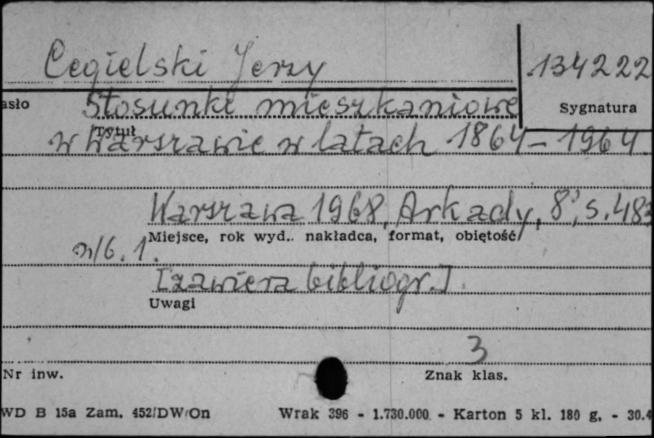 Cegielski Jerzy
134222
asło
Stosunki mieszkaniowe
Sygnatura
Tytuł
w Warszawie w latach 1864-1964.
Warszawa 1968, Arkady, 8°, s. 483
Miejsce, rok wyd.. nakładca, format, objętość
1.
[zawiera bibliogr.].
Uwagi
3
Nr inw.
Znak klas.
WD B 15a Zam. 452/DW/On Wrak 396 - 1.730.000 - Karton 5 kl. 180 g. - 30.4